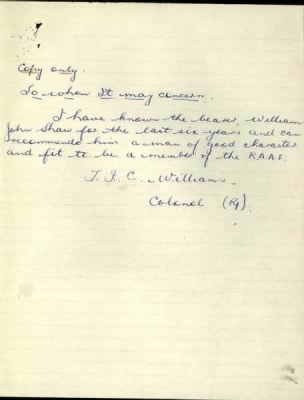 Copy only.
To whom It may concern.
I have known the bearer, William
John Shaw for the last six years and can
recommende him a man of good character
and fit to be a member of the R.A.A.F.
T. J. C. Williams.
Colonel (Rt)